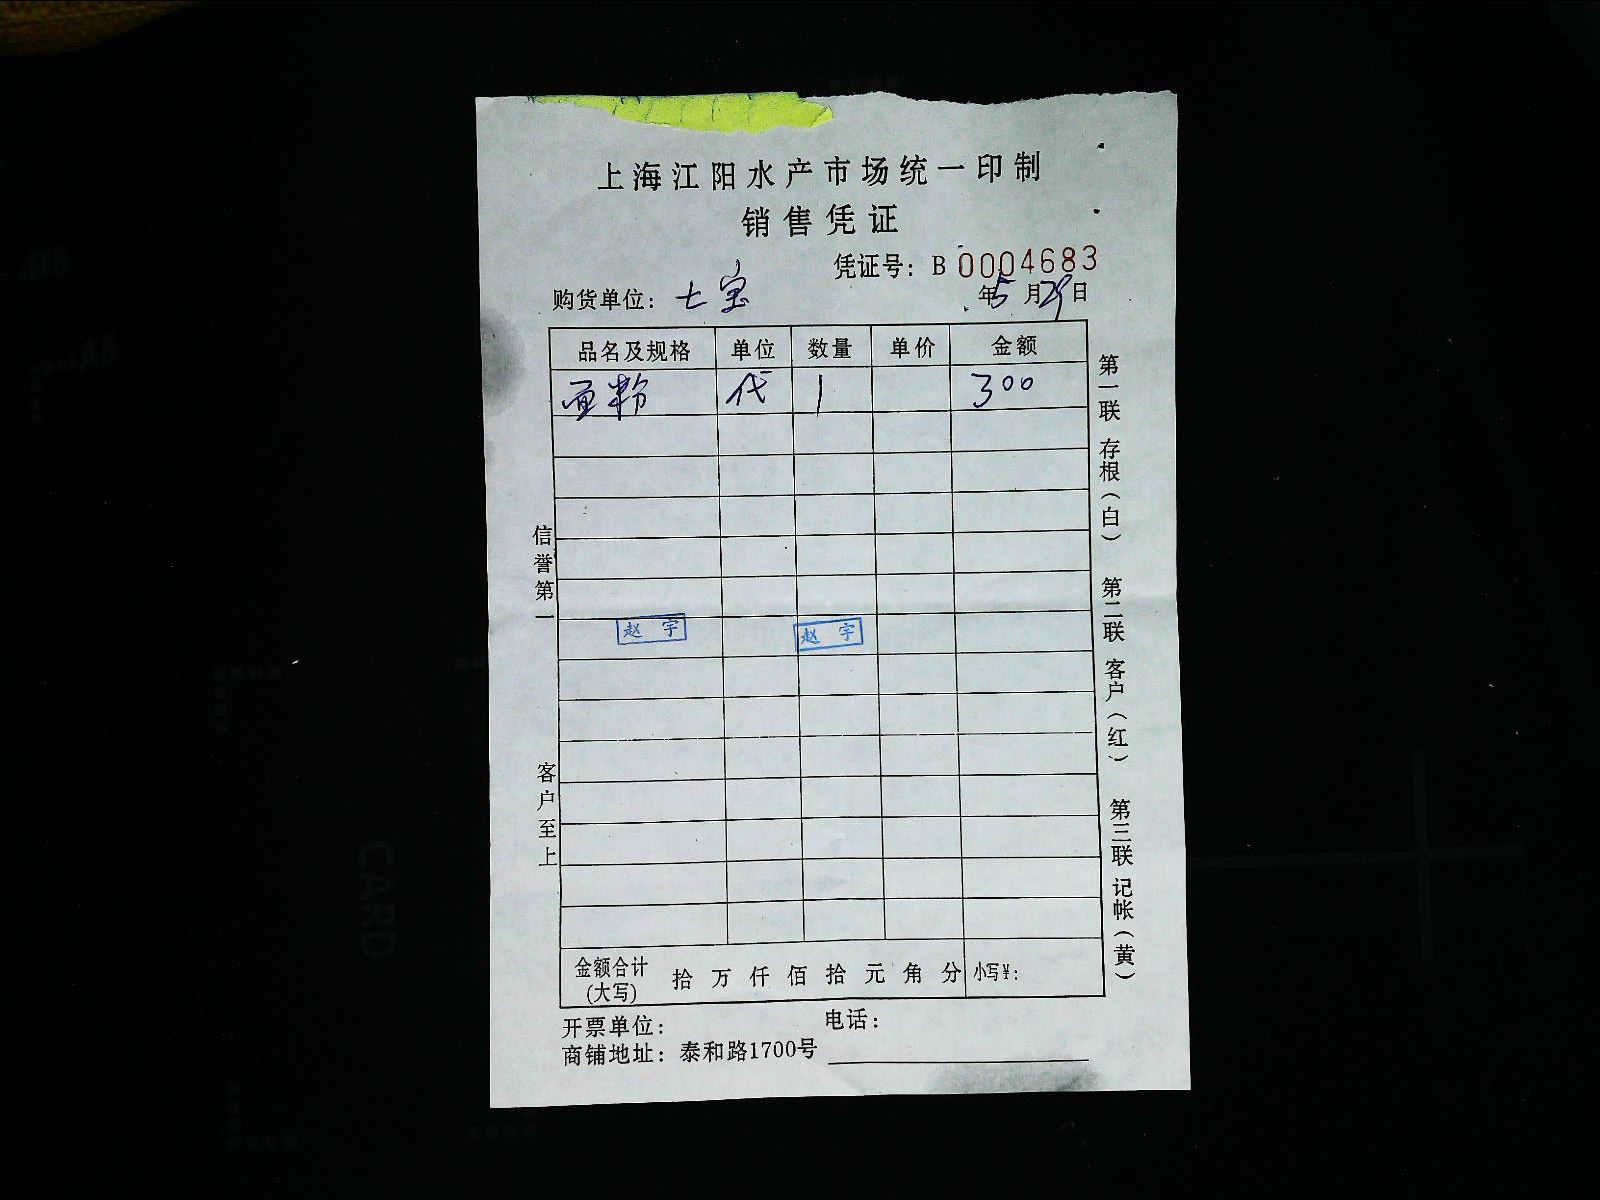 上海江阳水产市场统一印制
销售凭证
凭证号：B 0004683
购货单位：七宝 年5月29日
品名及规格 单位 数量 单价 金额
面粉 代 1 300
赵宇 赵宇
金额合计(大写) 拾万仟佰拾元角分 小写¥：
开票单位： 电话：
商铺地址：泰和路1700号
信誉第一 客户至上
第一联 存根（白） 第二联 客户（红） 第三联 记帐（黄）
B5
A5
CARD